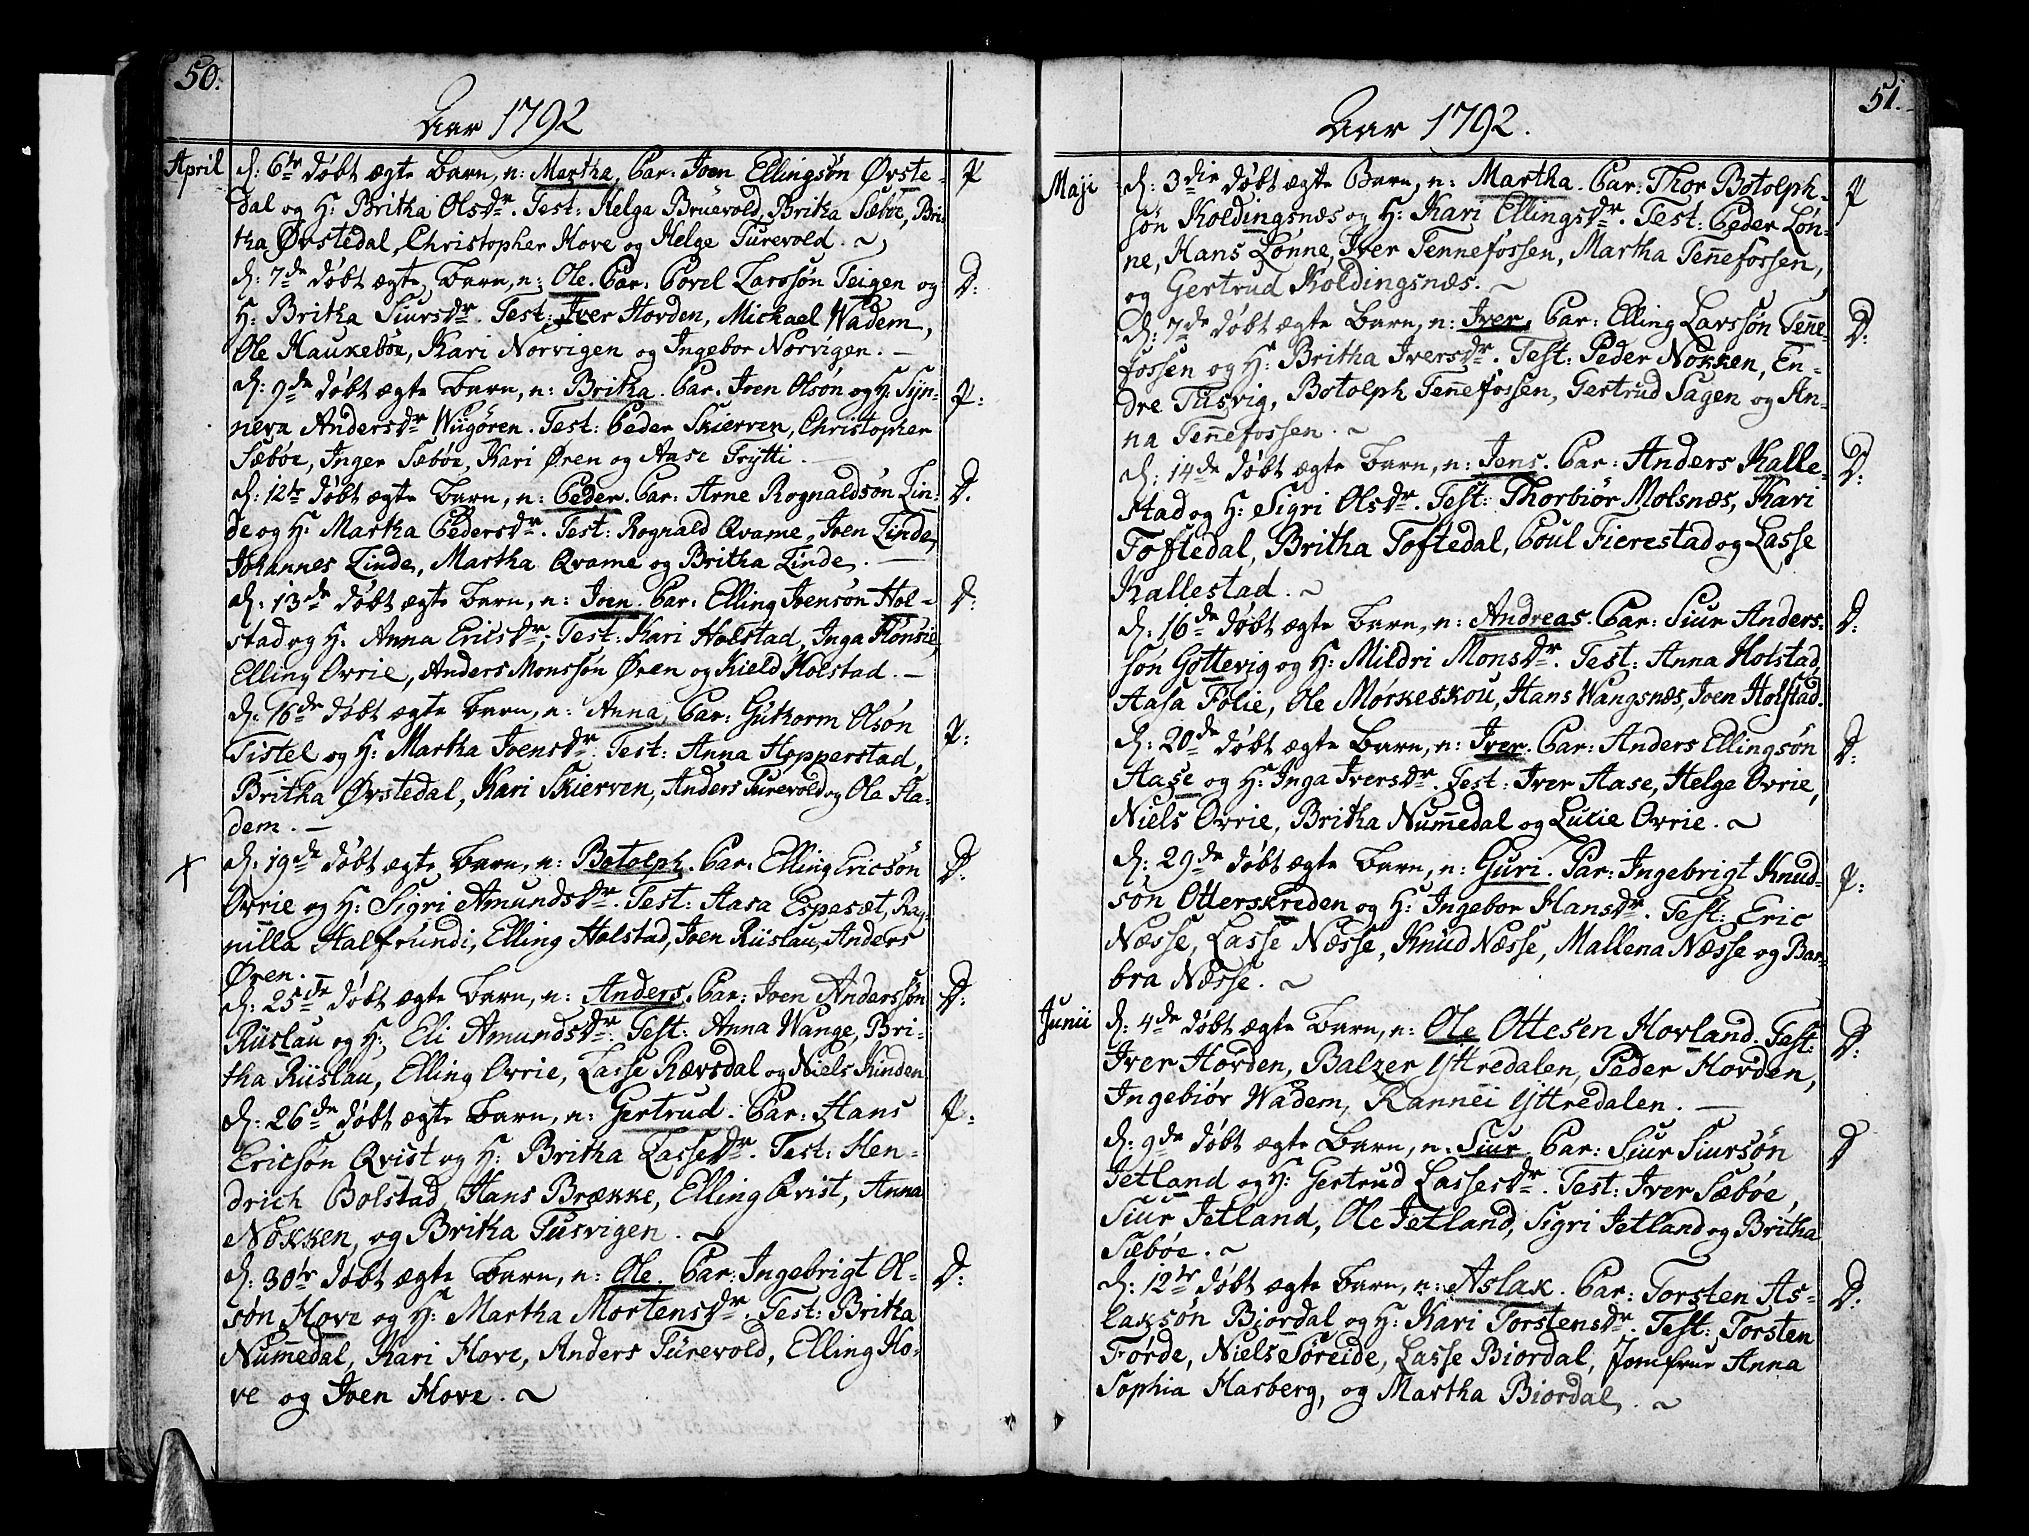 50.
Aar 1792
April
d: 6te døbt ægte Barn, n: Martha, Par: Joen Ellingsøn Øvste- P
dal og H: Britha Olsdr. Test: Helga Brüevold, Britha Sæbøe, Bri-
tha Øvstedal, Christopher Hove og Helge Turevold.
d: 7de døbt ægte Barn, n: Ole. Par: Povel Larssøn Teigen og D:
H: Britha Siursdr. Test: Iver Horden, Michael Wadem,
Ole Haukebøe, Kari Norvigen og Ingebor Norvigen.
d: 9de døbt ægte Barn, n: Britha. Par: Joen Olsøn og H: Syn- P:
neva Andersdr Wügören. Test: Peder Skierven, Christopher
Sæbøe, Inger Sæbøe, Kari Øren og Aase Frytti.
d: 12te døbt ægte Barn, n: Peder. Par: Arne Rognaldsøn Lin- D.
de og H: Martha Pedersdr. Test: Rognald Qvame, Joen Linde,
Johannes Linde, Martha Qvame og Britha Linde.
d: 13de døbt ægte Barn, n: Joen. Par: Elling Joensøn Hol- D:
stad og H: Anna Ericsdr, Test: Kari Holstad, Inga Hønsie,
Elling Ovrie, Anders Monssøn Øren og Kield Holstad.
d: 16de døbt ægte Barn, n: Anna, Par: Guthorm Olsøn P:
Tistel og H: Martha Joensdr. Test: Anna Hopperstad,
Britha Øvstedal, Kari Skierven, Anders Turevold og Ole Ha-
dem.
d: 19de døbt ægte Barn, n: Botolph. Par: Elling Ericsøn D:
Ovrie og H: Sigri Amundsdr. Test: Aasa Espesæt, Rag-
nilla Halfrundi, Elling Holstad, Joen Rüslau, Anders
Øren.
d: 25de døbt ægte Barn, n: Anders. Par: Joen Anderssøn D:
Rüslau og H: Eli Amundsdr. Test: Anna Wange, Bri-
tha Rüslau, Elling Ovrie, Lasse Rævsdal og Niels Kinden
d: 26de døbt ægte Barn, n: Gertrud. Par: Hans P:
Ericsøn Qvist og H: Britha Lassedr. Test: Hen-
drich Bolstad, Hans Brække, Elling Qvist, Anna
Nökken, og Britha Tusvigen.
d: 30te døbt ægte Barn, n: Ole. Par: Ingebrigt Ol- D:
søn Hove og H: Martha Mortensdr. Test: Britha
Numedal, Kari Hove, Anders Türevold, Elling Ho-
ve og Joen Hove.
51.
Aar 1792.
Maji
d: 3die døbt ægte Barn, n: Martha. Par: Thor Botolph- P
søn Koldingsnæs og H: Kari Ellingsdr. Test: Peder Løn-
ne, Hans Lønne, Iver Tennefossen, Martha Tennefossen,
og Gertrud Koldingsnæs.
d: 7de døbt ægte Barn, n: Iver. Par: Elling Larssøn Tenne- D:
fossen og H: Britha Iversdr. Test: Peder Nøkken, En-
dre Tusvig, Botolph Tennefossen, Gertrud Sagen og An-
na Tennefossen.
d: 14de døbt ægte Barn, n: Jens. Par: Anders Kalle- D:
stad og H: Sigri Olsdr. Test: Thorbiør Molsnæs, Kari
Toftedal, Britha Toftedal, Poul Fierestad og Lasse
Kallestad.
d: 16de døbt ægte Barn, n: Andreas. Par: Siur Anders- D:
søn Gottevig og H: Mildri Monsdr. Test: Anna Holstad,
Aasa Følie, Ole Mørkeskou, Hans Wangsnæs, Joen Holstad.
d: 20de døbt ægte Barn, n: Iver. Par: Anders Ellingsøn D:
Aase og H: Inga Iversdr. Test: Iver Aase, Helge Ovrie,
Niels Ovrie, Britha Nummedal og Lucie Ovrie.
d: 29de døbt ægte Barn, n: Guri. Par: Ingebrigt Knud- P:
søn Otterskreden og H: Ingebor Hansdr. Test: Eric
Næsse, Lasse Næsse, Knud Næsse, Mallena Næsse og Bar-
bra Næsse.
Junii
d: 4de døbt ægte Barn, n: Ole Ottesen Hovland. Test: D:
Iver Horden, Balzer Yttredalen, Peder Horden,
Ingebiør Wadem, Rannei Yttredalen.
d: 9de døbt ægte Barn, n: Siur. Par: Siur Siursøn D
Jetland og H: Gertrud Lassesdr. Test: Iver Sæbøe,
Siur Jetland, Ole Jetland, Sigri Jetland og Britha
Sæbøe.
d: 12te døbt ægte Barn, n: Aslak. Par: Torsten As- D:
laksøn Bjordal og H: Kari Torstensdr. Test: Torsten
Førde, Niels Søreide, Lasse Biordal, Jomfrue Anna
Sophia Harberg, og Martha Biordal.